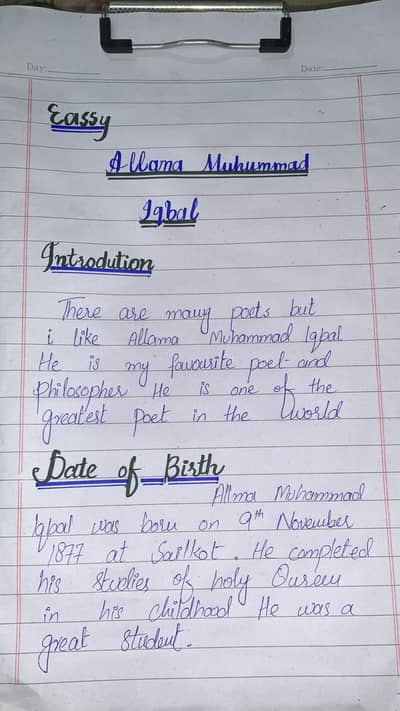 Day:
Date:
Eassy
Allama Muhummad
Iqbal
Introdution
There are many poets but
i like Allama Muhammad Iqbal
He is my favourite poet and
philosopher He is one of the
greatest poet in the world
Date of Birth
Allma Muhammad
Iqbal was born on 9th November
1877 at Sailkot. He completed
his studies of holy Qurem
in his childhood He was a
great student.